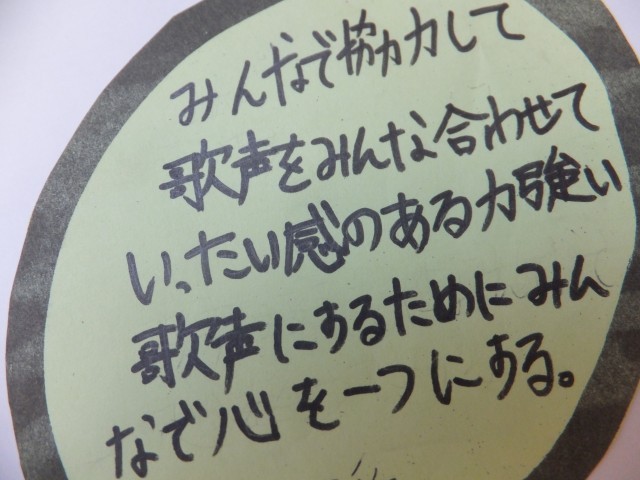 みんなで協力して
歌声をみんな合わせて
いったい感のある力強い
歌声にするためにみん
なで心を一つにする。